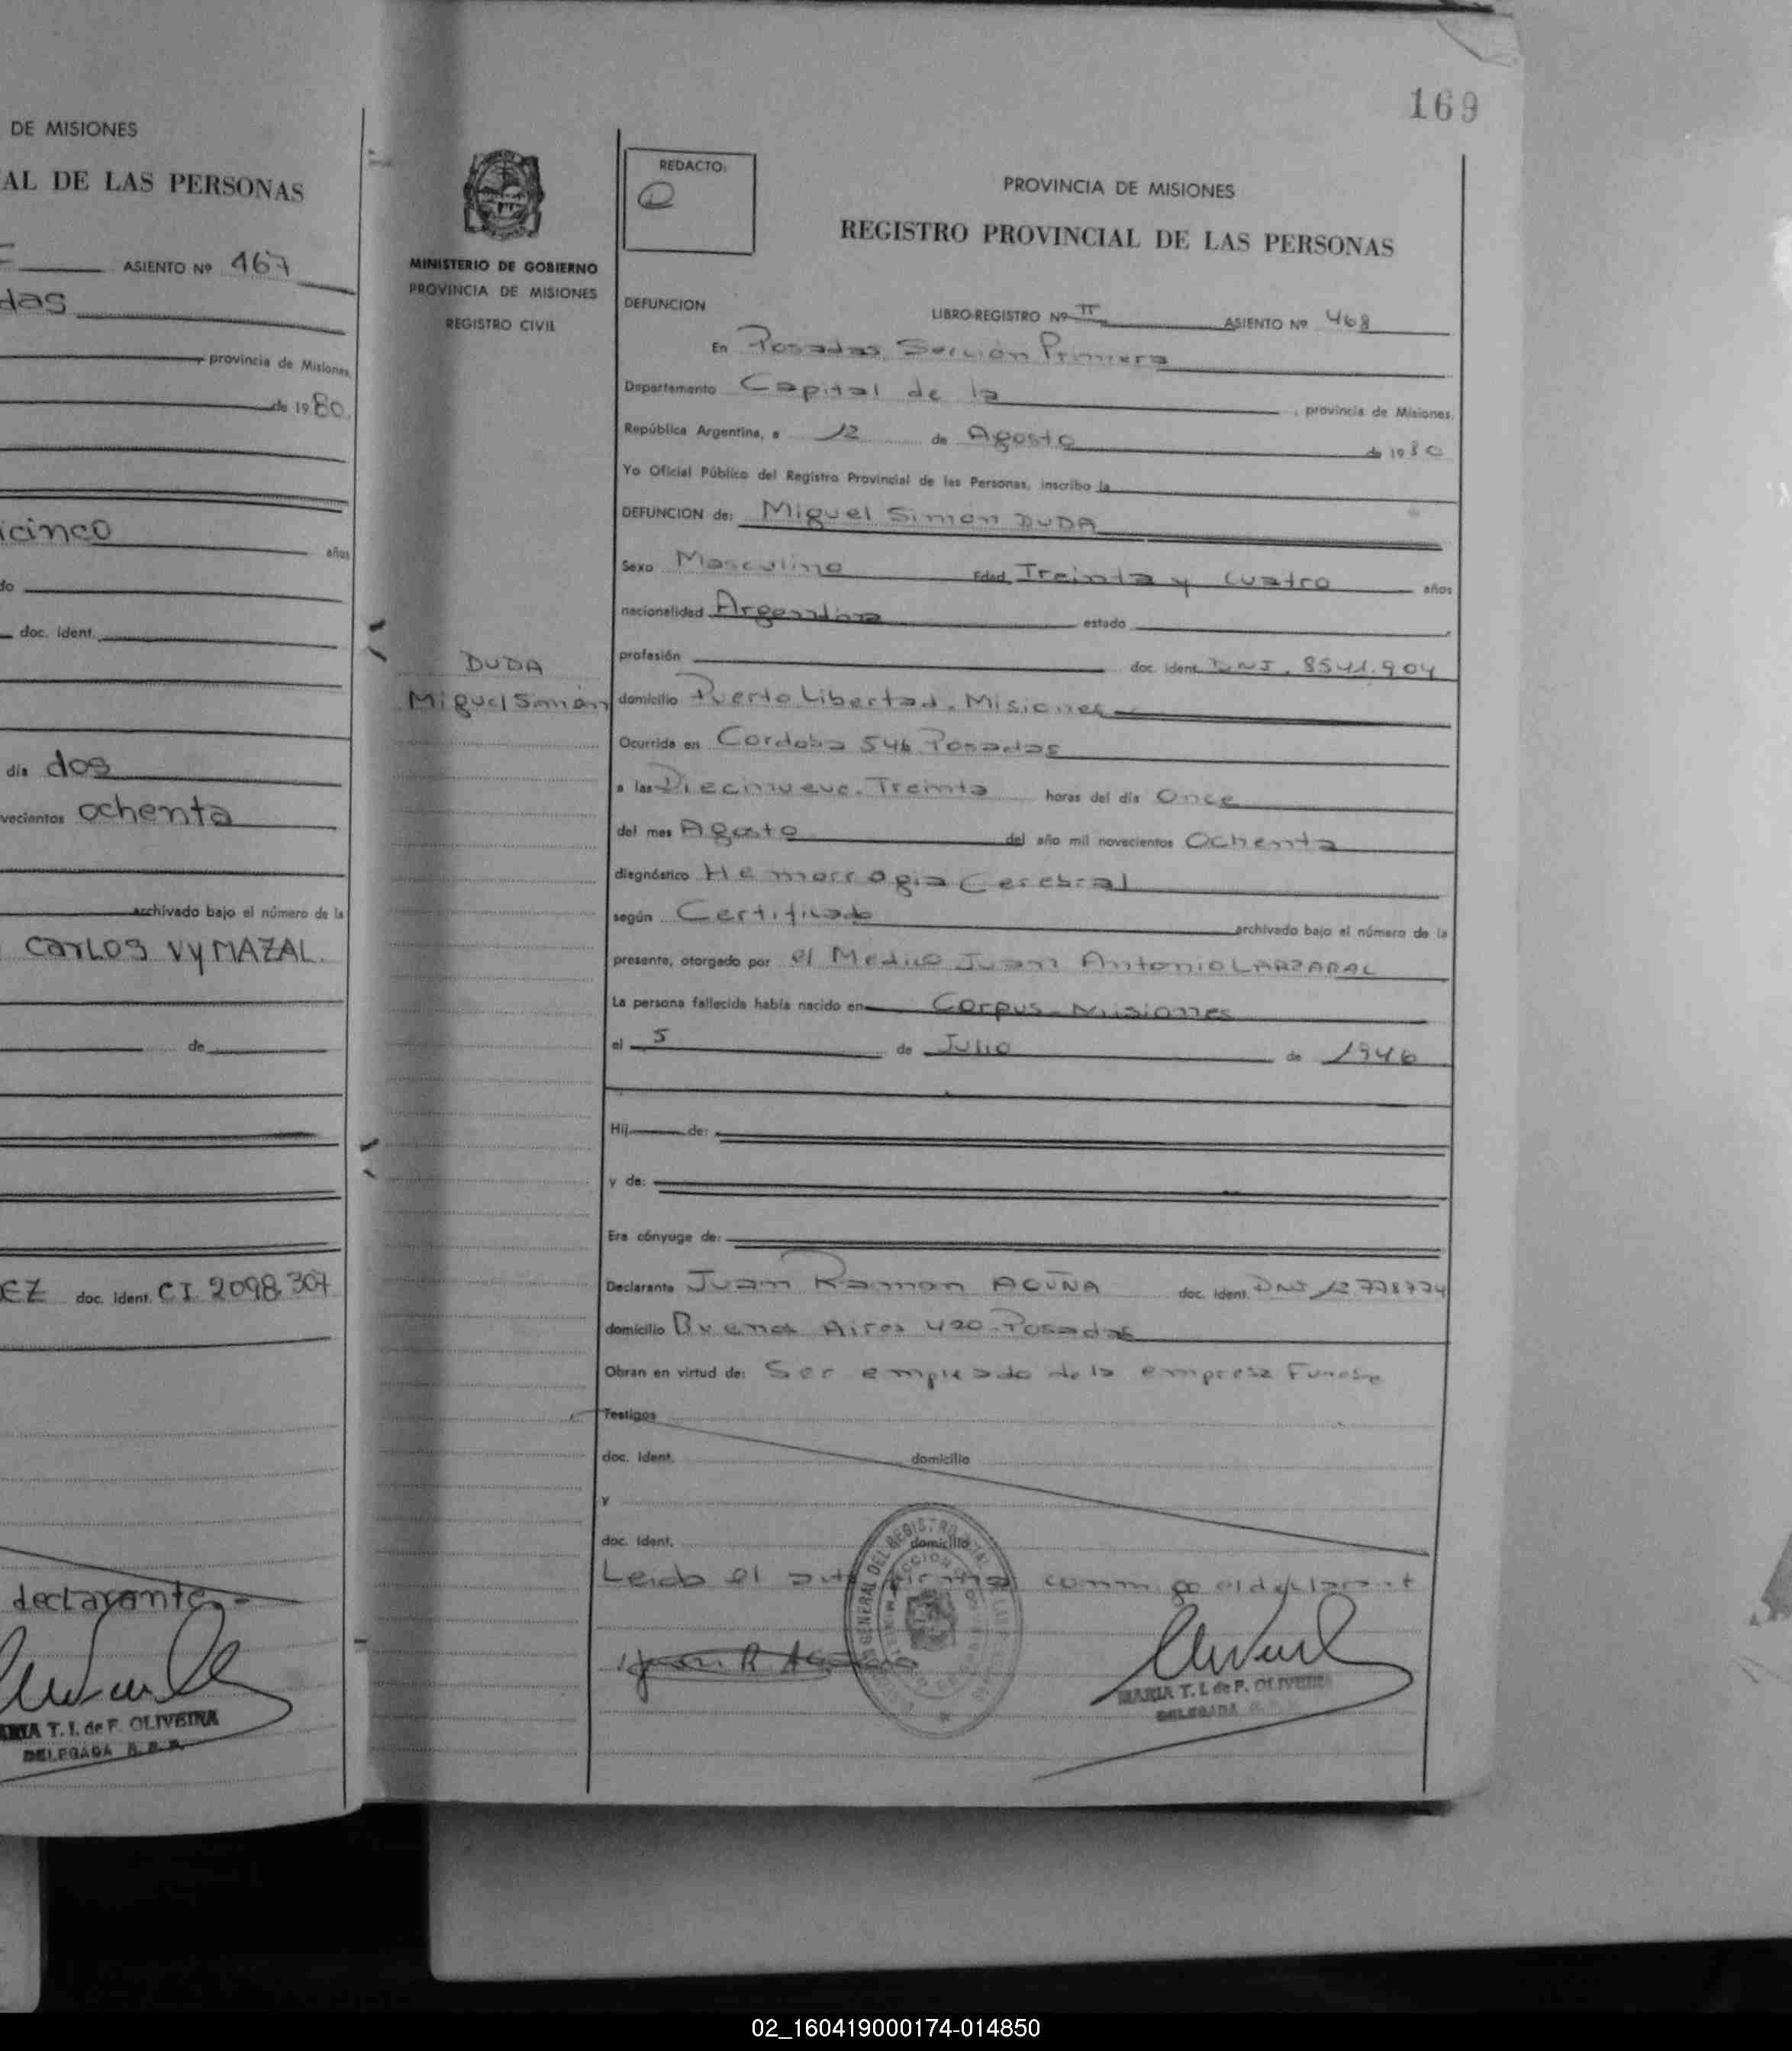 DE MISIONES
AL DE LAS PERSONAS
ASIENTO Nº 467
das
provincia de Misiones,
de 1980.
icinco
años
do
doc. ident.
día dos
vecientos ochenta
archivado bajo el número de la
CARLOS VYMAZAL.
de
EZ doc. ident. CI. 2098.307
declarante.-
MARIA T. I. de F. OLIVEIRA
DELEGADA R.P.P.
169
MINISTERIO DE GOBIERNO
PROVINCIA DE MISIONES
REGISTRO CIVIL
DUDA
Miguel Simón
REDACTO:
PROVINCIA DE MISIONES
REGISTRO PROVINCIAL DE LAS PERSONAS
DEFUNCION LIBRO-REGISTRO Nº II ASIENTO Nº 468
En Posadas, Sección Primera
Departamento Capital de la , provincia de Misiones,
República Argentina, a 12 de Agosto de 1980
Yo Oficial Público del Registro Provincial de las Personas, inscribo la
DEFUNCION de: Miguel Simón DUDA
Sexo Masculino Edad Treinta y cuatro años
nacionalidad Argentina estado
profesión doc. ident. DNI. 8541.904
domicilio Puerto Libertad. Misiones
Ocurrida en Cordoba 546 Posadas
a las Diecinueve. Treinta horas del día Once
del mes Agosto del año mil novecientos Ochenta
diagnóstico Hemorrogia Cerebral
según Certificado archivado bajo el número de la
presente, otorgado por el Medico Juan Antonio LARZABAL
La persona fallecida había nacido en Corpus. Misiones
el 5 de Julio de 1946
Hij de:
y de:
Era cónyuge de:
Declarante Juan Ramon ACUÑA doc. ident. DNI 12.778774
domicilio Buenos Aires 420. Posadas
Obran en virtud de: Ser empleado de la empresa Funebre
Testigos
doc. ident. domicilio
y
doc. ident. domicilio
Leido el acta firma conmigo el declarant
MARIA T. I. de F. OLIVEIRA
DELEGADA
02_160419000174-014850